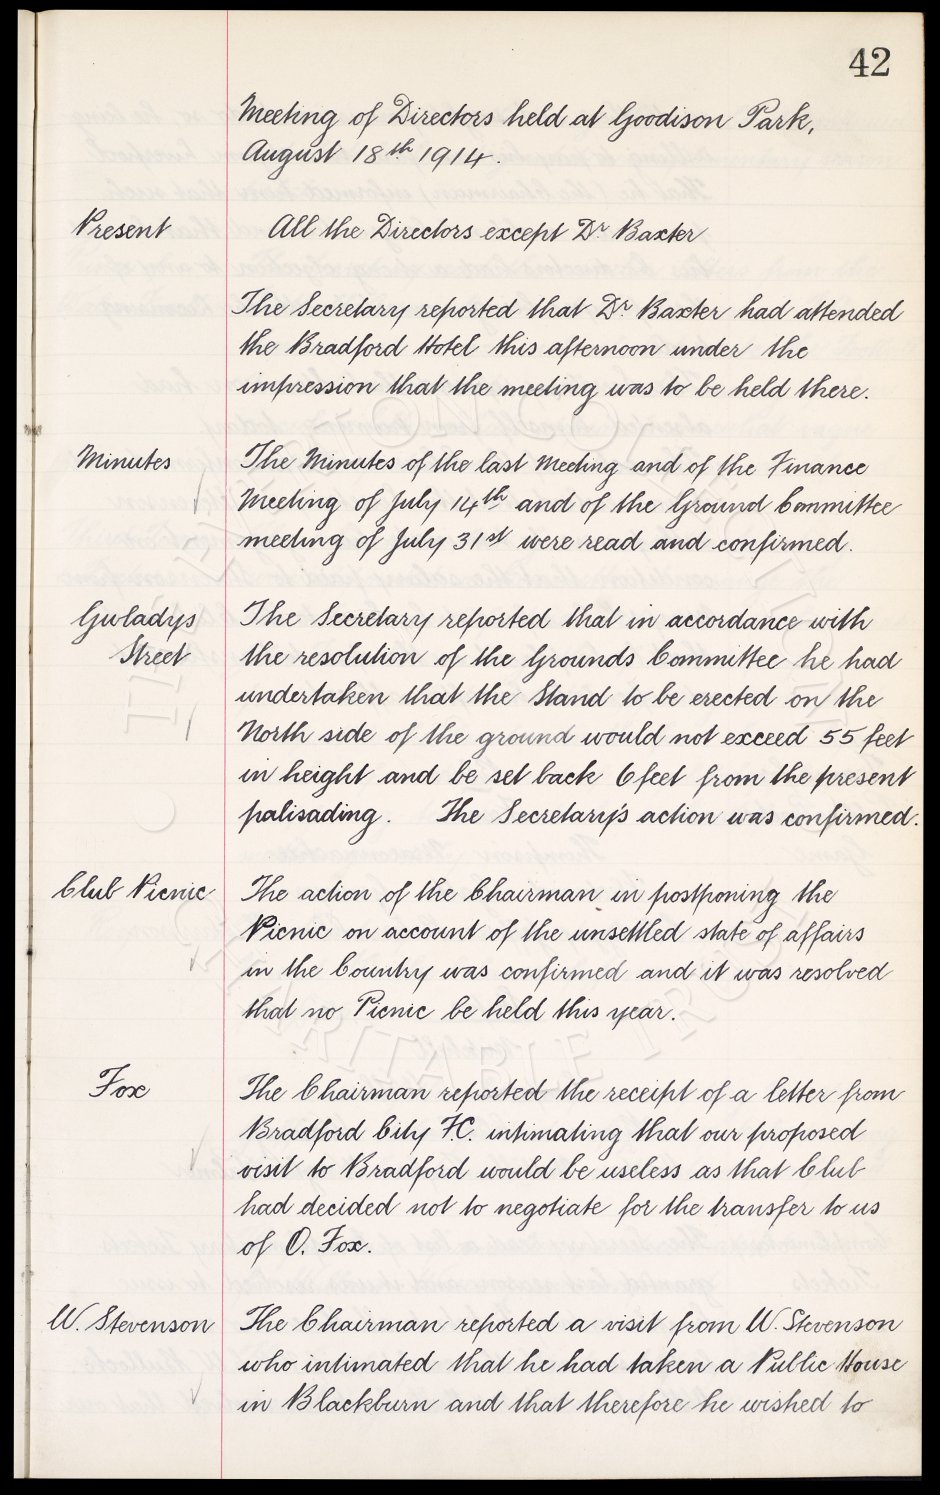 42
Meeting of Directors held at Goodison Park,
August 18th 1914.
Present
All the Directors except Dr Baxter
The Secretary reported that Dr Baxter had attended
the Bradford Hotel this afternoon under the
impression that the meeting was to be held there.
Minutes
The Minutes of the last Meeting and of the Finance
Meeting of July 14th and of the Ground Committee
meeting of July 31st were read and confirmed.
Gwladys
Street
The Secretary reported that in accordance with
the resolution of the Grounds Committee he had
undertaken that the Stand to be erected on the
North side of the ground would not exceed 55 feet
in height and be set back 6 feet from the present
palisading. The Secretary's action was confirmed.
Club Picnic
The action of the Chairman in postponing the
Picnic on account of the unsettled state of affairs
in the Country was confirmed and it was resolved
that no Picnic be held this year.
Fox
The Chairman reported the receipt of a letter from
Bradford City F.C. intimating that our proposed
visit to Bradford would be useless as that Club
had decided not to negotiate for the transfer to us
of O. Fox.
W. Stevenson
The Chairman reported a visit from W. Stevenson
who intimated that he had taken a Public House
in Blackburn and that therefore he wished to